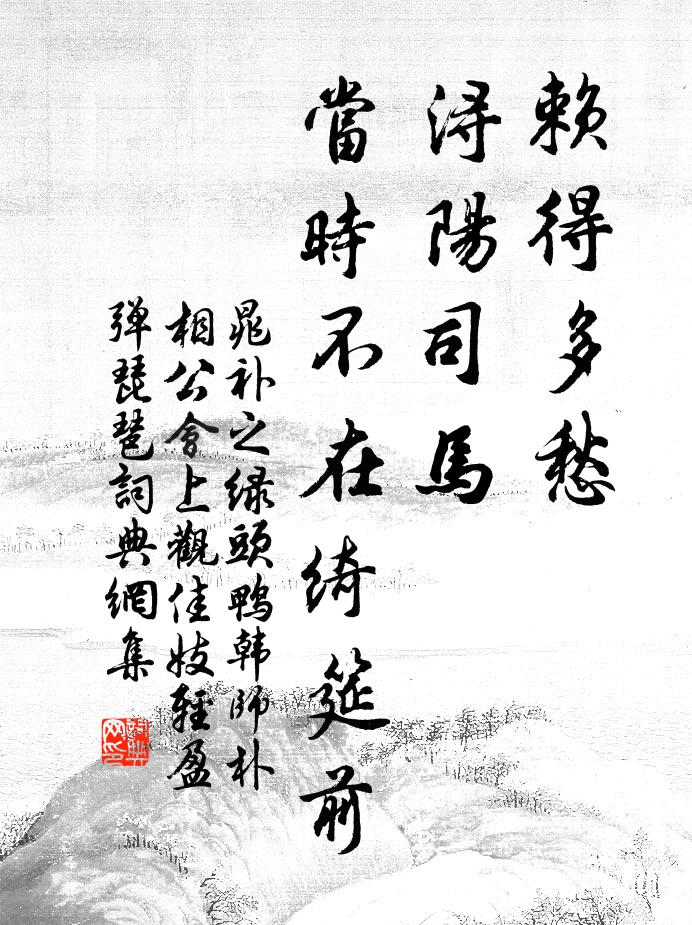 賴得多愁
潯陽司馬
當時不在綺筵前
晁补之绿頭鴨韩師朴
相公會上觀佳妓輕盈
弹琵琶詞典網集